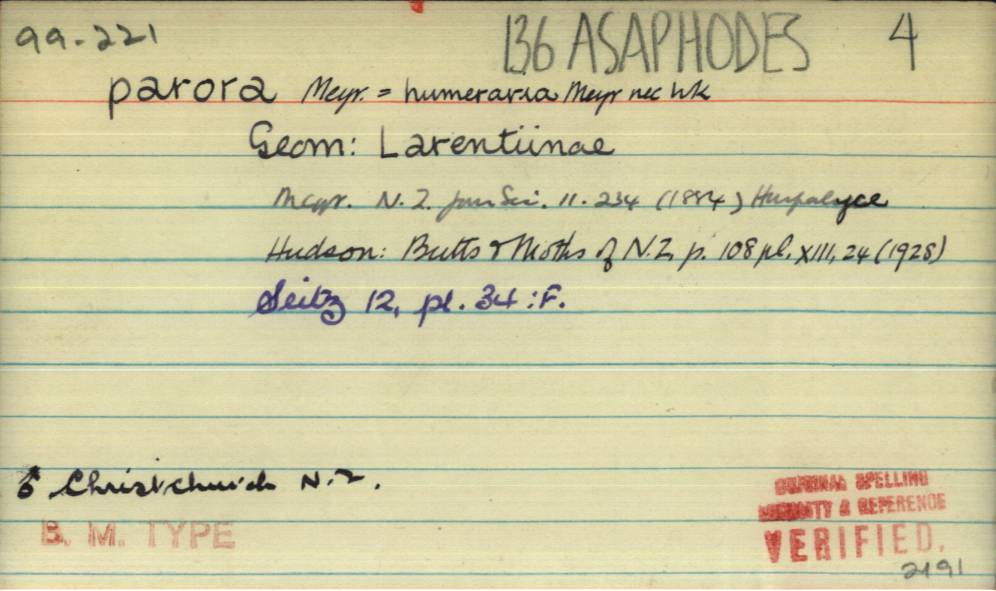 99-221 136 ASAPHODES 4
parora Meyr. = humeraria Meyr nec Wk
Geom: Larentiinae
Meyr. N.Z. Jour Sci. 11. 234 (1884) Harpalyce
Hudson: Butts & Moths of N.Z. p. 108 pl. XIII, 24 (1928)
Seitz 12, pl. 34 : F.
♂ Christchurch N.Z.
B. M. TYPE
ORIGINAL SPELLING
PRIORITY & REFERENCE
VERIFIED.
2191